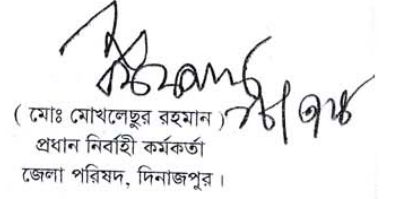 ( মোঃ মোখলেছুর রহমান )
প্রধান নির্বাহী কর্মকর্তা
জেলা পরিষদ, দিনাজপুর।